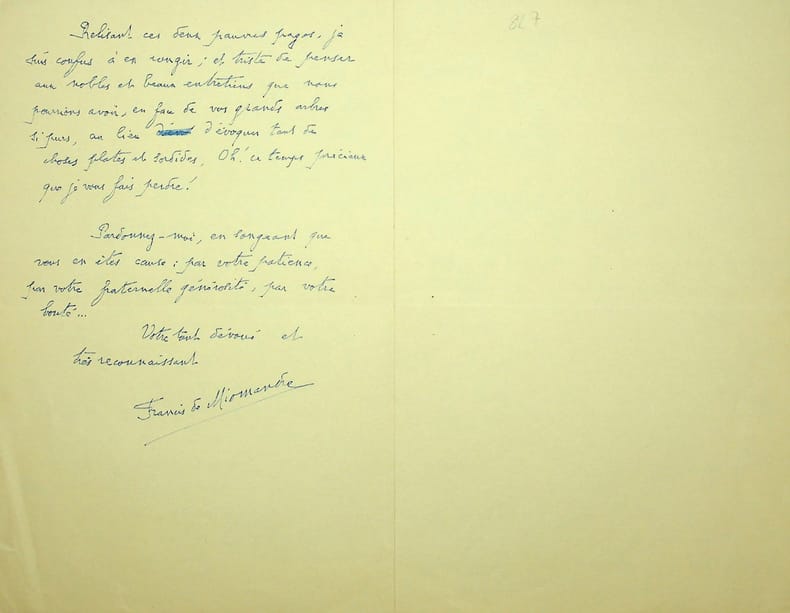 827
Relisant ces deux pauvres pages, je
suis confus à en rougir ; et triste de penser
aux nobles et beaux entretiens que nous
pourrions avoir, en face de vos grands arbres
si purs, au lieu d'évoquer tant de
choses plates et sordides. Oh! ce temps précieux
que je vous fais perdre!
Pardonnez-moi, en songeant que
vous en êtes cause : par votre patience,
par votre fraternelle générosité, par votre
bonté...
Votre tant dévoué et
très reconnaissant
Francis de Miomandre